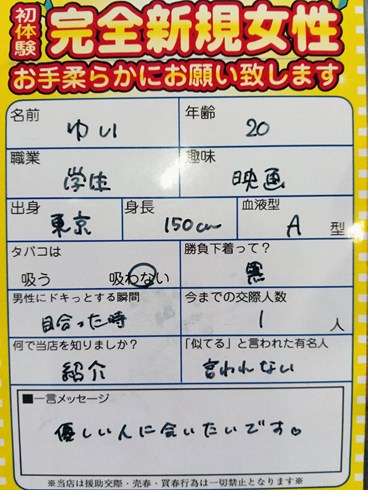 初体験 完全新規女性
お手柔らかにお願い致します
名前 ゆい 年齢 20
職業 学生 趣味 映画
出身 東京 身長 150cm 血液型 A 型
タバコは 吸う 吸わない 勝負下着って? 黒
男性にドキっとする瞬間 目合った時 今までの交際人数 1 人
何で当店を知りましたか? 紹介 「似てる」と言われた有名人 言われない
■一言メッセージ
優しい人に会いたいです。
※当店は援助交際・売春・買春行為は一切禁止となります※